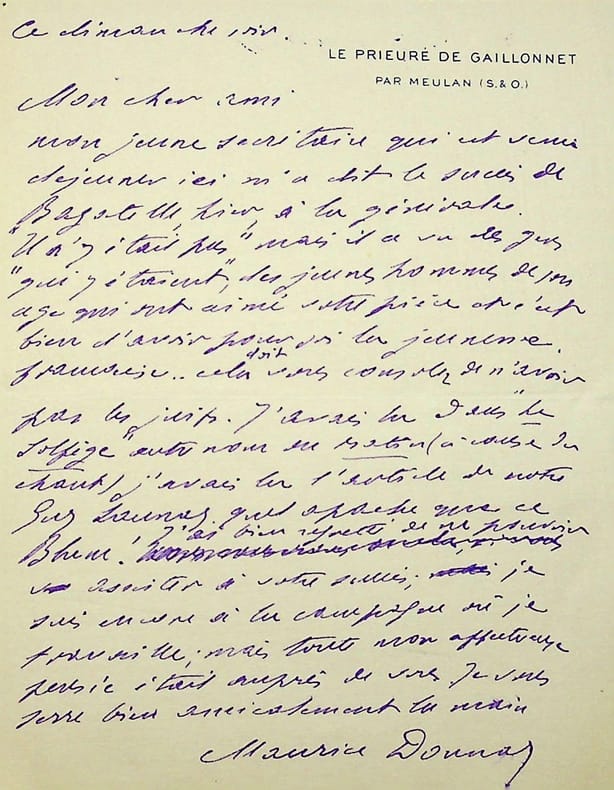 Ce dimanche soir.
LE PRIEURÉ DE GAILLONNET
PAR MEULAN (S.&O.)
Mon cher ami
mon jeune secrétaire qui est venu
déjeuner ici m'a dit le succès de
Bagatelle, hier, à la générale.
"Il n'y était pas" mais il a vu des gens
"qui y étaient", des jeunes hommes de son
age qui ont aimé votre pièce et c'est
bien d'avoir pour soi la jeunesse
française.. cela doit vous consoler de n'avoir
pas les juifs. J'avais lu dans "le
Solfège" autre nom du matin (à cause du
chant) j'avais lu l'article de notre
Guy Launay, quel apache que ce
Blum! J'ai bien regretté de ne pouvoir
assister à votre succès; je
suis encore à la campagne où je
travaille; mais toute mon affectueuse
pensée était auprès de vous. Je vous
serre bien amicalement la main
Maurice Donnay